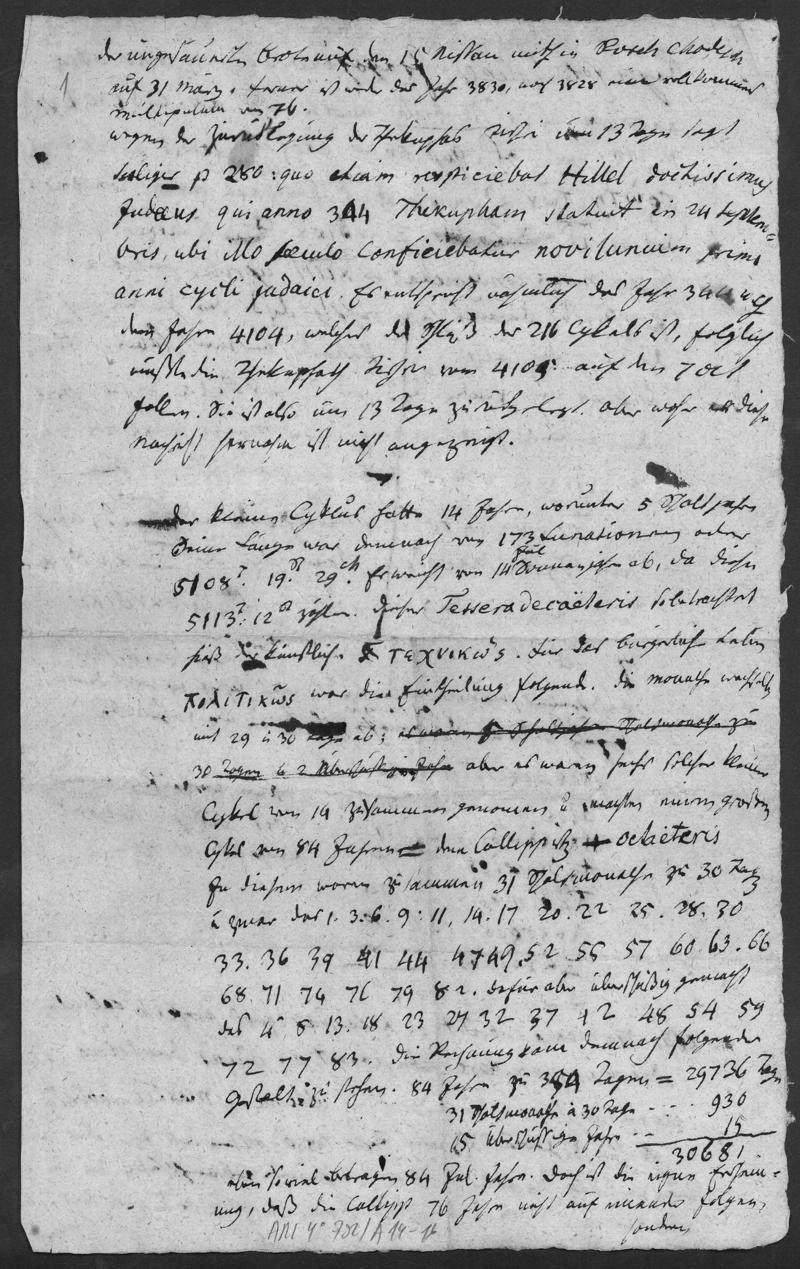 der ungesäuerten Brote auf den 15 Nissan mithin Rosch Chodesch
1
auf 31 März. ferner ist weder das Jahr 3830, noch 3828 ein vollkommenes
multiplum von 76.
wegen der Zurücklegung der Thekuphas Tisri um 13 Tage sagt
Scaliger p 280: quo etiam respiciebat Hillel doctissimus
Judaeus qui anno 344 Thekupham statuit in 24 Septem=
bris, ubi illo seculo conficiebatur novilunium primi
anni cycli judaici. Es entspricht nähmlich das Jahr 344
dem Jahre 4104, welches der Schluß der 216 Cykels ist, folglich
mußte die Thekuphath Tisri von 4105 auf den 7 Oct
fallen. Sie ist also um 13 Tage zurükgelegt. aber woher er diese
Nachricht hernahm ist nicht angezeigt.
Der kleine Cyklus hatte 14 Jahre, worunter 5 Schaltjahre
Seine Länge war demnach von 173 Lunationen oder
5108 T. 19 St 29 ch. Er weicht von 14 Jul Sonnenjahren ab, da diese
5113 T. 12 St zählen. Dieser Tesseradecaëteris so betrachtet
hieß der künstliche τεχνικῶς. Für das bürgerliche Leben
πολιτικῶς war die Eintheilung folgende. die Monathe wechselten
mit 29 u 30 Tage ab; es waren Schaltjahre Schaltmonathe zu
30 Tagen aber es waren sechs solcher kleiner
Cykel von 14 zusammen genomen u machten einen großen
Cykel von 84 Jahren = dem Callippisch + octaeteris
In diesem waren zusammen 31 Schaltmonathe zu 30 Tag
u zwar das 1. 3. 6. 9. 11. 14. 17 20. 22 25. 28. 30
33. 36 39 41 44 47 49. 52 55 57 60. 63. 66
68. 71 74 76 79 82. dafür aber überschüßig gemacht
das 4 8 13. 18 23 27 32 37 42 48 54 59
72 77 83. die Rechnung kam demnach folgender
Gestalt zu stehen. 84 Jahre zu 354 Tagen = 29736 Tage
31 Schaltmonathe à 30 Tage - - - 930
15 überschüssige Jahre - - 15
30681
eben so viel betragen 84 Jul. Jahre. Doch ist die eigne Erschein=
ung, daß die Callipp 76 Jahre nicht auf einander folgen,
sondern